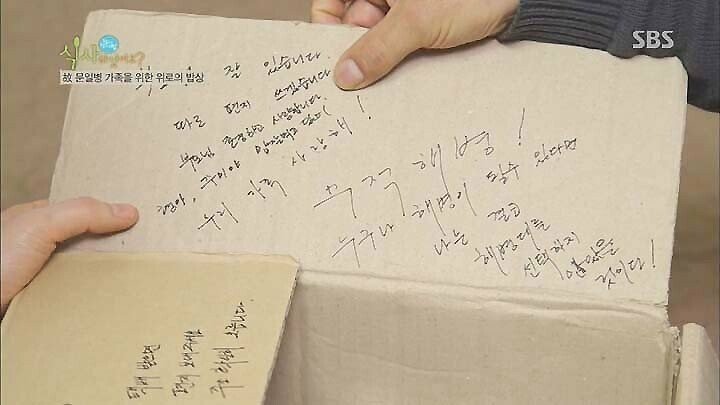 식사하셨어요?
故 문일병 가족을 위한 위로의 밥상
SBS
잘 있습니다.
따로 편지 쓰겠습니다.
부모님 존경하고 사랑합니다.
우리 가족 사랑해!
무적해병!
누구나 해병이 될수 있다면
나는 결코
해병대를
선택하지
않았을
것이다!
택배 받으면
편지 보내주세요